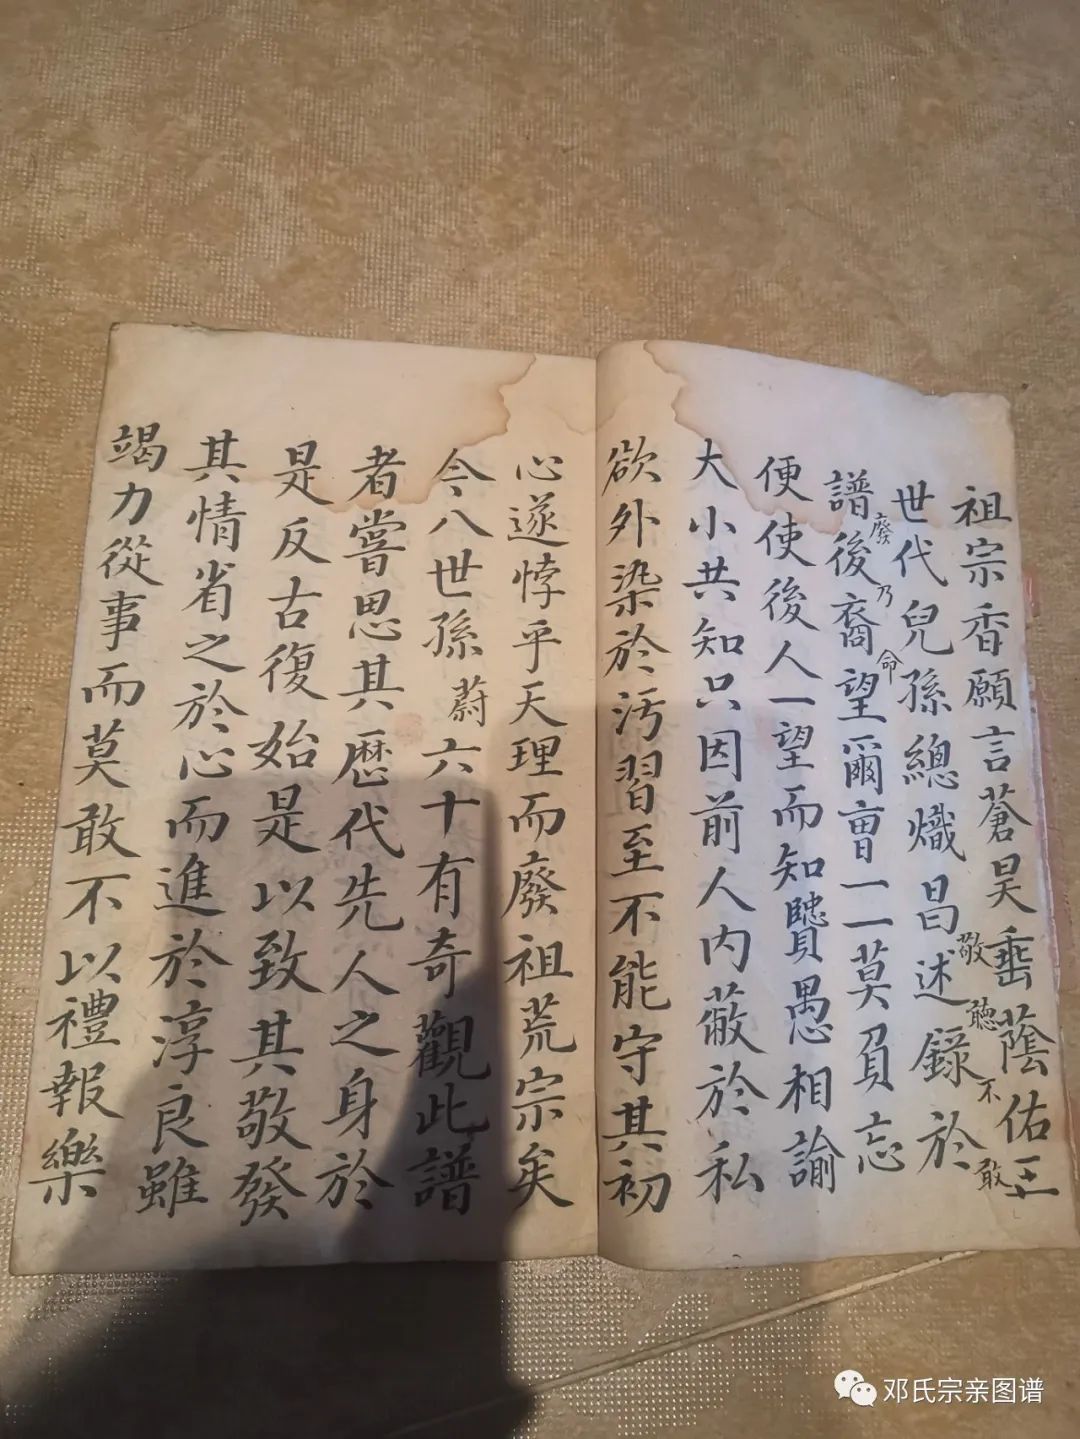 祖宗香願言蒼昊垂蔭佑王
世代兒孫總熾昌述錄於
敬聽不敢
譜後裔望爾曹一一莫負忘
廢乃命
便使後人一望而知賢愚相諭
聽
大小共知只因前人内蔽於私
欲外染於汚習至不能守其初
心遂悖乎天理而廢祖荒宗矣
今八世孫蔚六十有奇觀此譜
者嘗思其歷代先人之身於
是反古復始是以致其敬發
其情省之於心而進於淳良雖
竭力從事而莫敢不以禮報樂
邓氏宗亲图谱